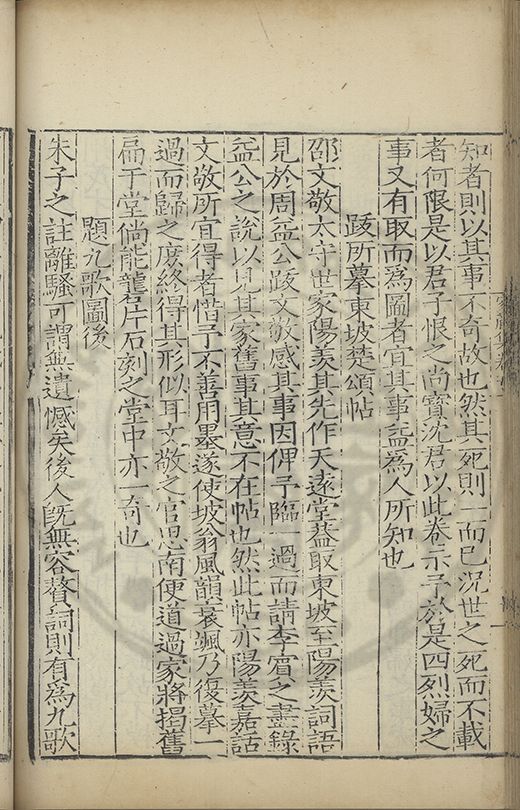 知者則以其事不奇故也然其死則一而已况世之死而不載
者何限是以君子恨之尚寶沈君以此卷示予於是四烈婦之
事又有取而爲圖者宜其事益爲人所知也
跋所摹東坡楚頌帖
邵文敬太守世家陽羡其先作天遠堂葢取東坡至陽羡詞語
見於周益公跋文敬感其事因俾予臨一過而請李賔之盡錄
益公之說以見其家舊事其意不在帖也然此帖亦陽羡嘉話
文敬所宜得者惜予不善用墨遂使坡翁風韻衰颯乃復摹一
過而歸之庶終得其形似耳文敬之官思南便道過家將揭舊
扁于堂倘能礱片石刻之堂中亦一奇也
題九歌圖後
朱子之註離騷可謂無遺憾矣後人旣無容贅詞則有爲九歌